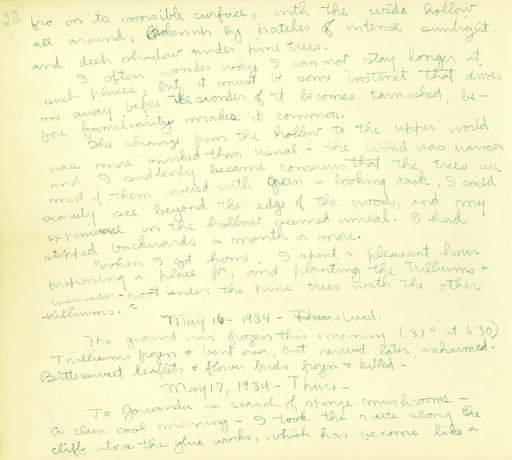 22 fro on its invisible surface, with the wide hollow
all around, broken by patches of intense sunlight
and deep shadow under pine trees.
I often wonder why I cannot stay longer at
such places, but it must be some instinct that drives
me away before the wonder of it becomes tarnished, be-
fore familiarity makes it common.
The change from the hollow to the upper world
was more marked than usual - the wind was warmer
and I suddenly became conscious that the trees
most of them covered with green - looking back, I could
scarcely see beyond the edge of the woods, and my
experience in the hollow seemed unreal. I had
stepped backwards a month or more.
When I got home, I spent a pleasant hour
preparing a place for, and planting the Trilliums +
cucumber-root under the pine trees with the other
trilliums.
May 16 - 1934 - Thurs Wed.
The ground was frozen this morning (31° at 6:30)
Trilliums frozen & bent over, but revived later, unharmed.
Bittersweet leaflets & flower buds frozen & killed -
May 17, 1934 - Thurs -
To Gowanda in search of sponge mushrooms -
A clear cool morning - I took the route along the
cliffs above the glue works, which has become like a